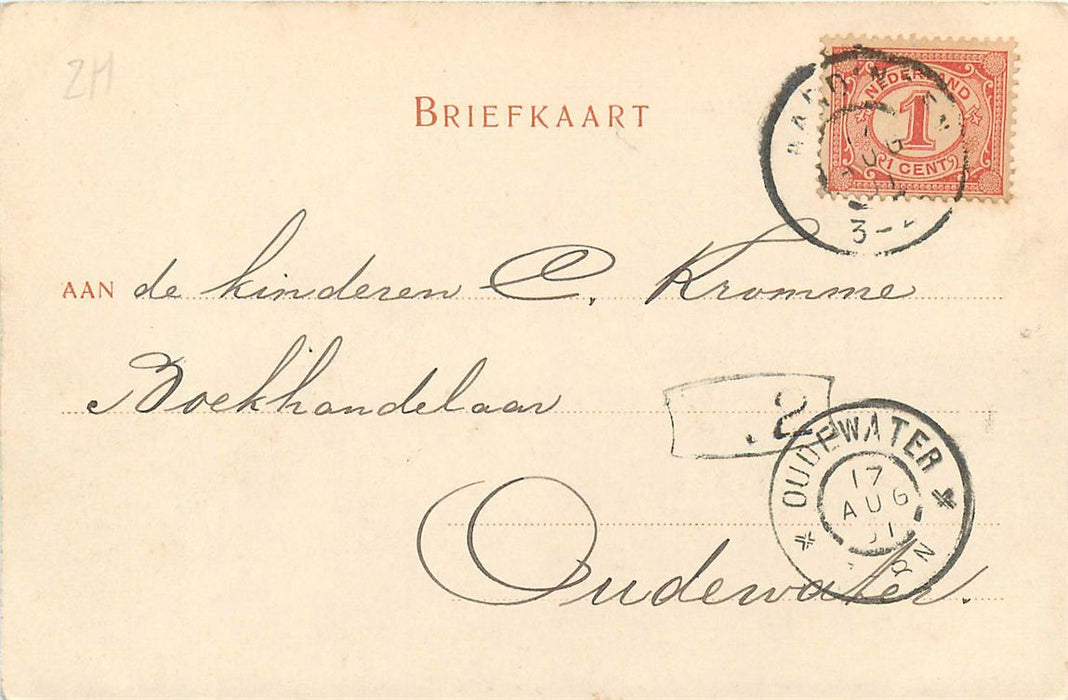 2H
BRIEFKAART
NEDERLAND
1
1 CENT
AUG
3-
AAN de kinderen C. Kromme
Boekhandelaar
2
OUDEWATER
17
AUG
01
Oudewater.